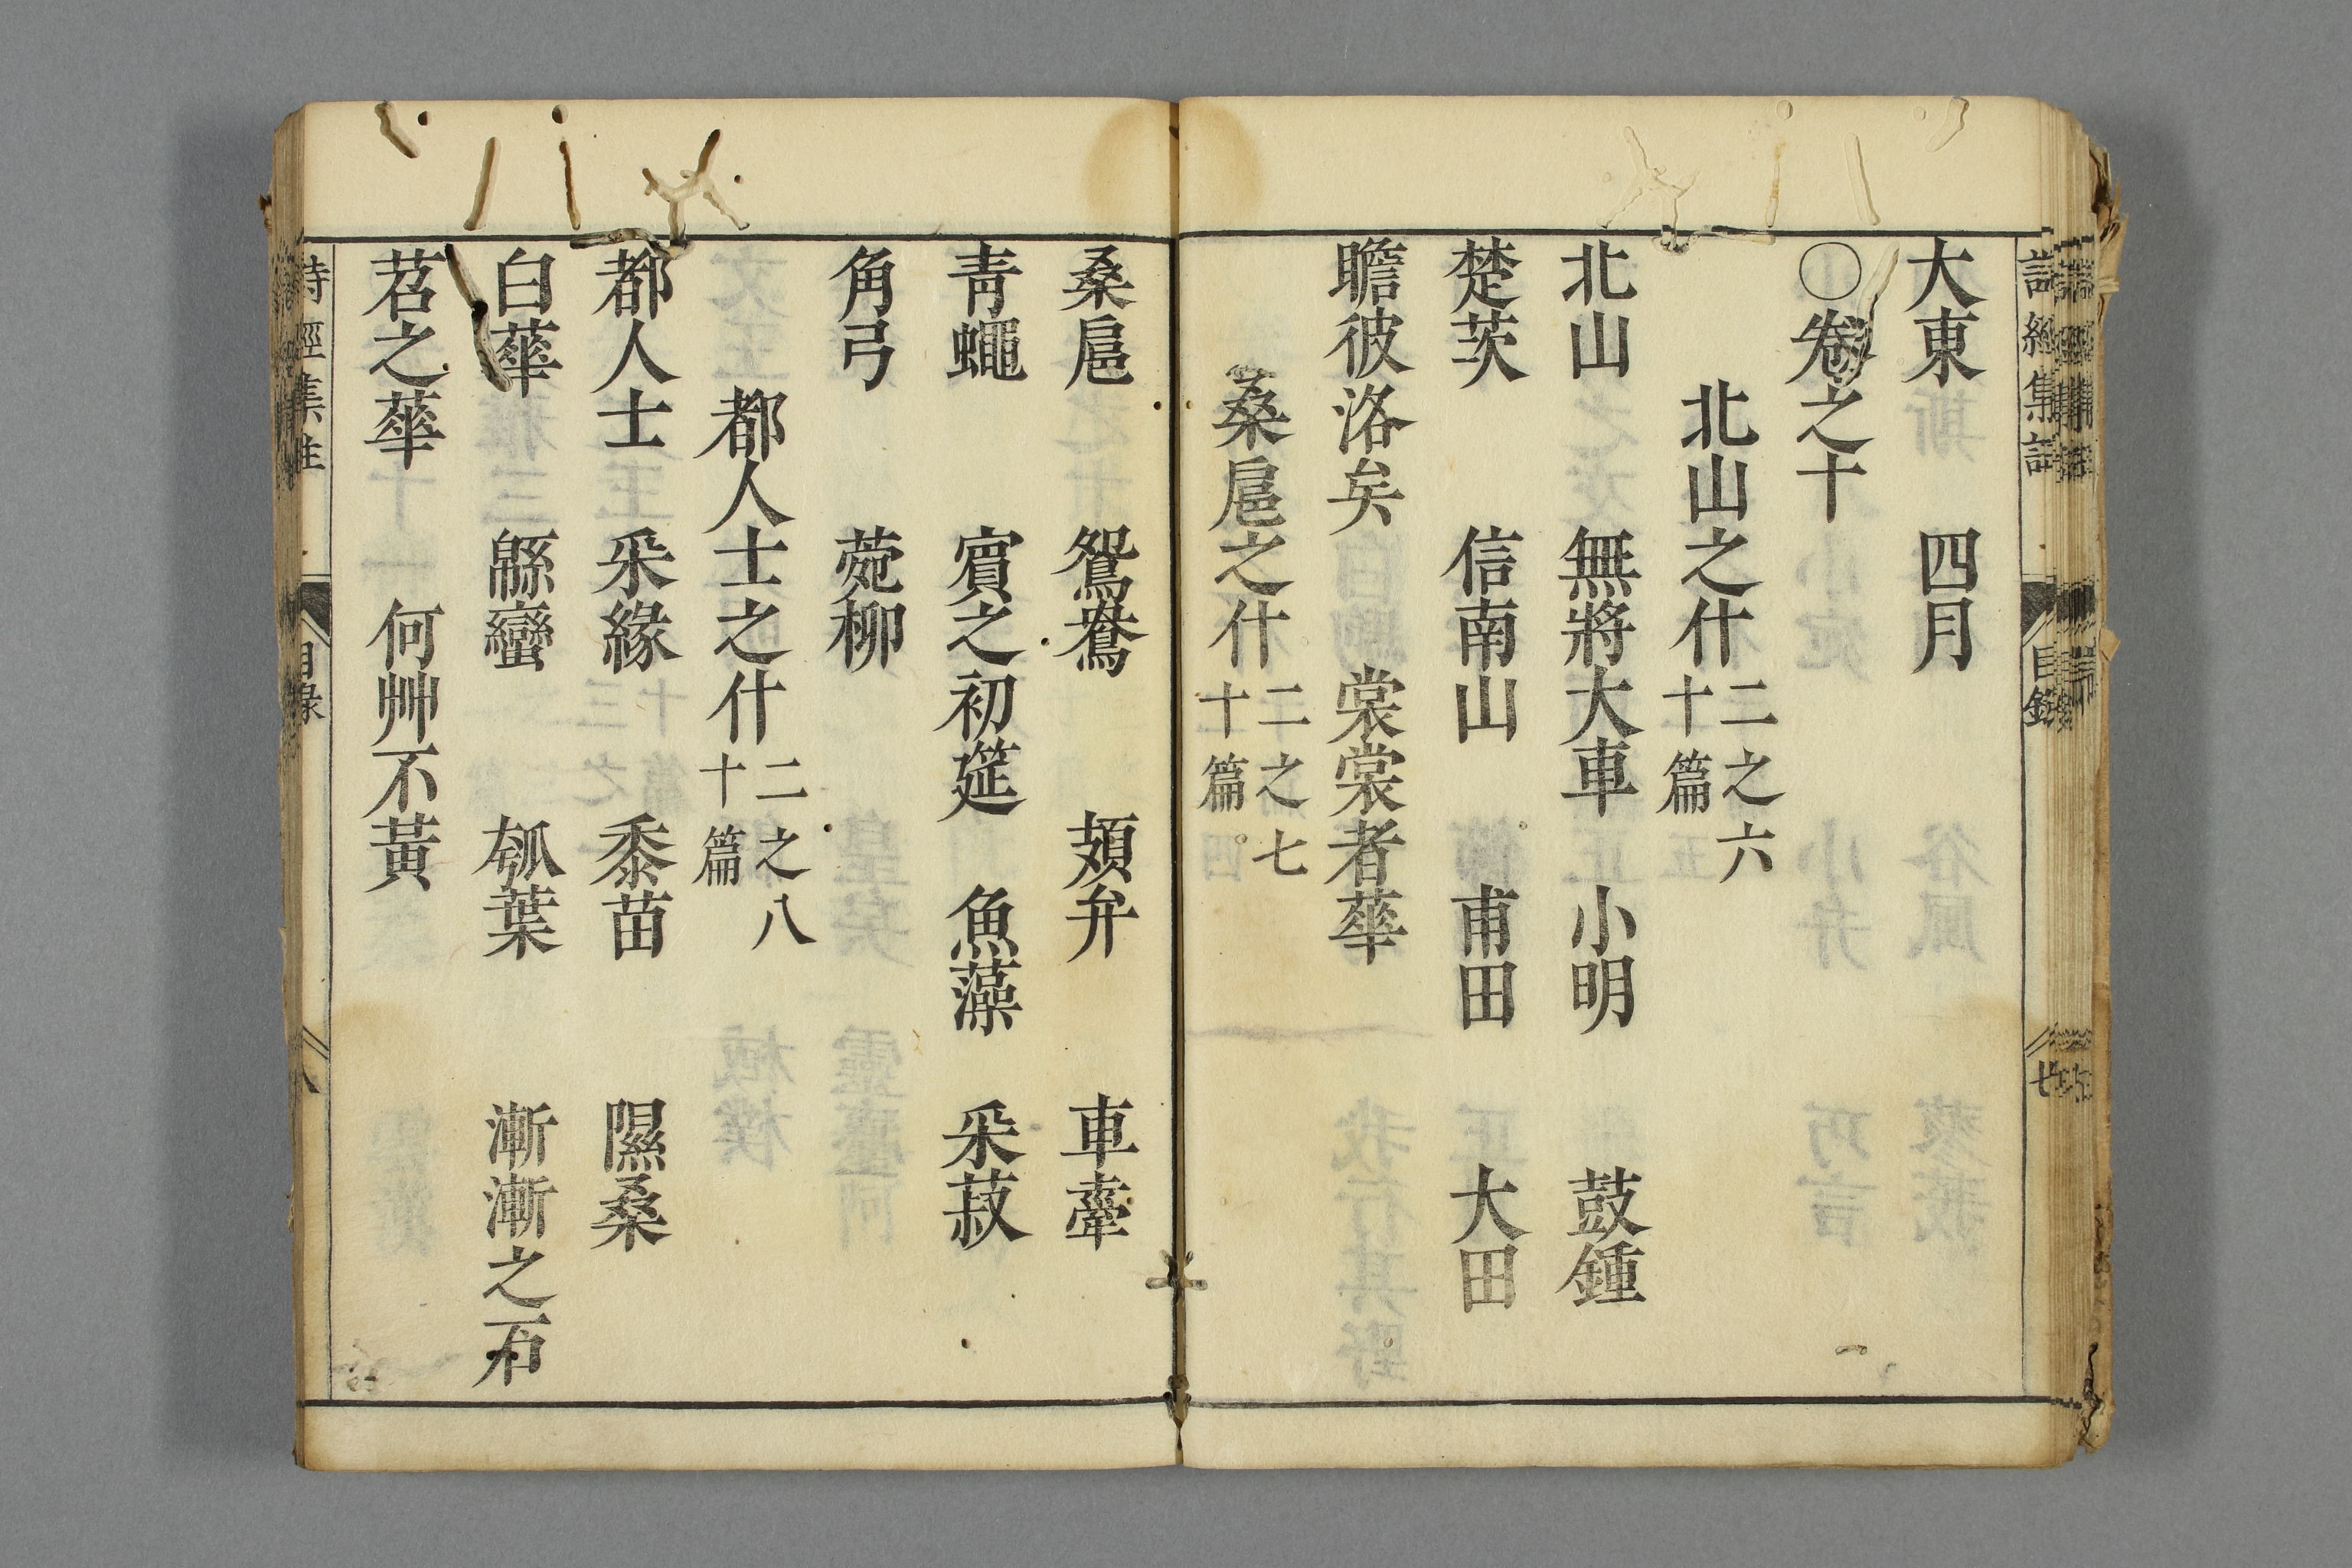 大東 四月
〇卷之十
北山之什 二之六 十篇
北山 無將大車 小明 鼓鍾
楚茨 信南山 甫田 大田
瞻彼洛矣 裳裳者華
桑扈之什 二之七 十篇
桑扈 鴛鴦 頍弁 車舝
靑蠅 賓之初筵 魚藻 采菽
角弓 菀柳
都人士之什 二之八 十篇
都人士 采綠 黍苗 隰桑
白華 緜蠻 瓠葉 漸漸之石
苕之華 何艸不黃
詩經集註 目錄 八